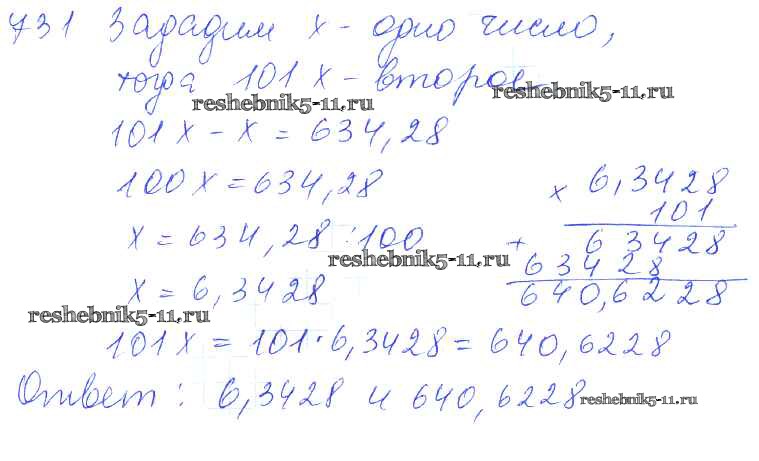 731 Зададим x - одно число,
тогда 101 x - второе
reshebnik5-11.ru reshebnik5-11.ru
101 x - x = 634,28
100 x = 634,28
x = 634,28 : 100
reshebnik5-11.ru
x = 6,3428
reshebnik5-11.ru
× 6,3428
101
+ 63428
63428
640,6228
101 x = 101 · 6,3428 = 640,6228
Ответ : 6,3428 и 640,6228
reshebnik5-11.ru